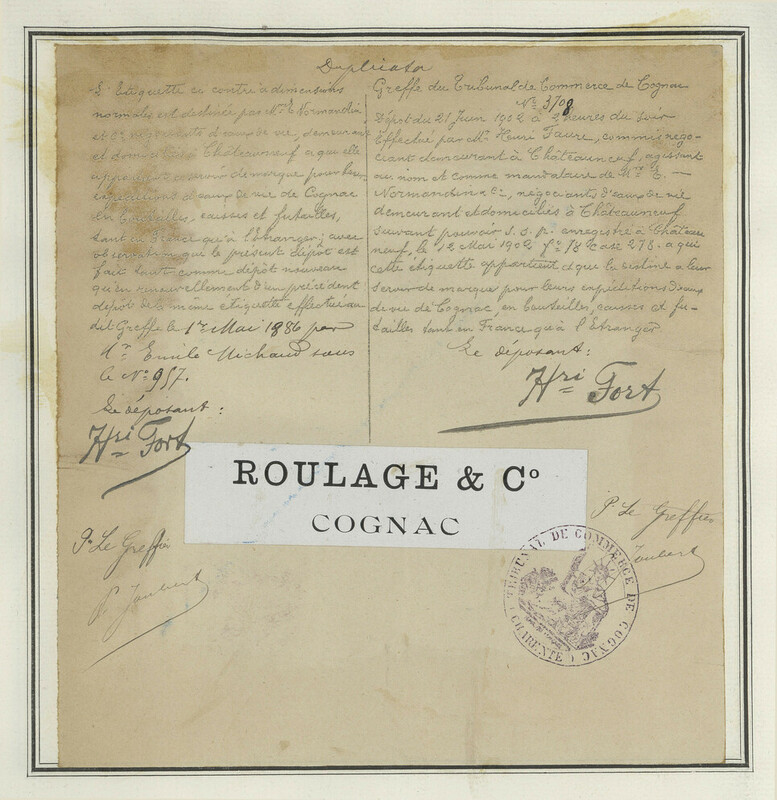 Duplicata
L'Etiquette ci contre à dimensions
normales est destinée par Mrs E. Normandin
et Cie négociants d'eaux de vie, demeurant
et domiciliés à Châteauneuf à qui elle
appartient à servir de marque pour leurs
expéditions d'eaux de vie de Cognac
en bouteilles, caisses et futailles,
tant en France qu'à l'Etranger; avec
observation que le présent dépôt est
fait tant comme dépôt nouveau
qu'en renouvellement d'un précédent
dépôt de la même étiquette effectué au
dit Greffe le 1er Mai 1886 par
Mr. Emile Michaud sous
le No 957.
Le déposant:
Hri Fort
Pr Le Greffier
P. Joubert
Greffe du Tribunal de Commerce de Cognac
No 3708
Dépôt du 21 Juin 1902 à 2 heures du soir
Effectué par Mr. Henri Faure, commis négo-
ciant demeurant à Châteauneuf, agissant
au nom et comme mandataire de Mrs E. —
Normandin & Cie, négociants d'eaux de vie
demeurant et domiciliés à Châteauneuf
suivant pouvoir s. s. p. enregistré à Château
neuf, le 12 Mai 1902 fo 78 case 278, à qui
cette étiquette appartient et que la destine à leur
servir de marque pour leurs expéditions d'eaux
de vie de Cognac, en bouteilles, caisses et fu-
tailles tant en France qu'à l'Etranger.
Le déposant:
Hri Fort
ROULAGE & Co
COGNAC
P. Le Greffier
Joubert
TRIBUNAL DE COMMERCE DE COGNAC
(CHARENTE)